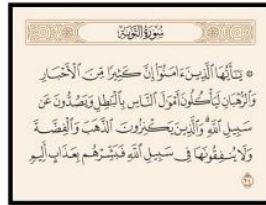 سُورَةُ التَّوْبَةِ
۞ يَٰٓأَيُّهَا ٱلَّذِينَ ءَامَنُوٓا۟ إِنَّ كَثِيرًا مِّنَ ٱلْأَحْبَارِ
وَٱلرُّهْبَانِ لَيَأْكُلُونَ أَمْوَٰلَ ٱلنَّاسِ بِٱلْبَٰطِلِ وَيَصُدُّونَ عَن
سَبِيلِ ٱللَّهِ ۗ وَٱلَّذِينَ يَكْنِزُونَ ٱلذَّهَبَ وَٱلْفِضَّةَ
وَلَا يُنفِقُونَهَا فِى سَبِيلِ ٱللَّهِ فَبَشِّرْهُم بِعَذَابٍ أَلِيمٍ